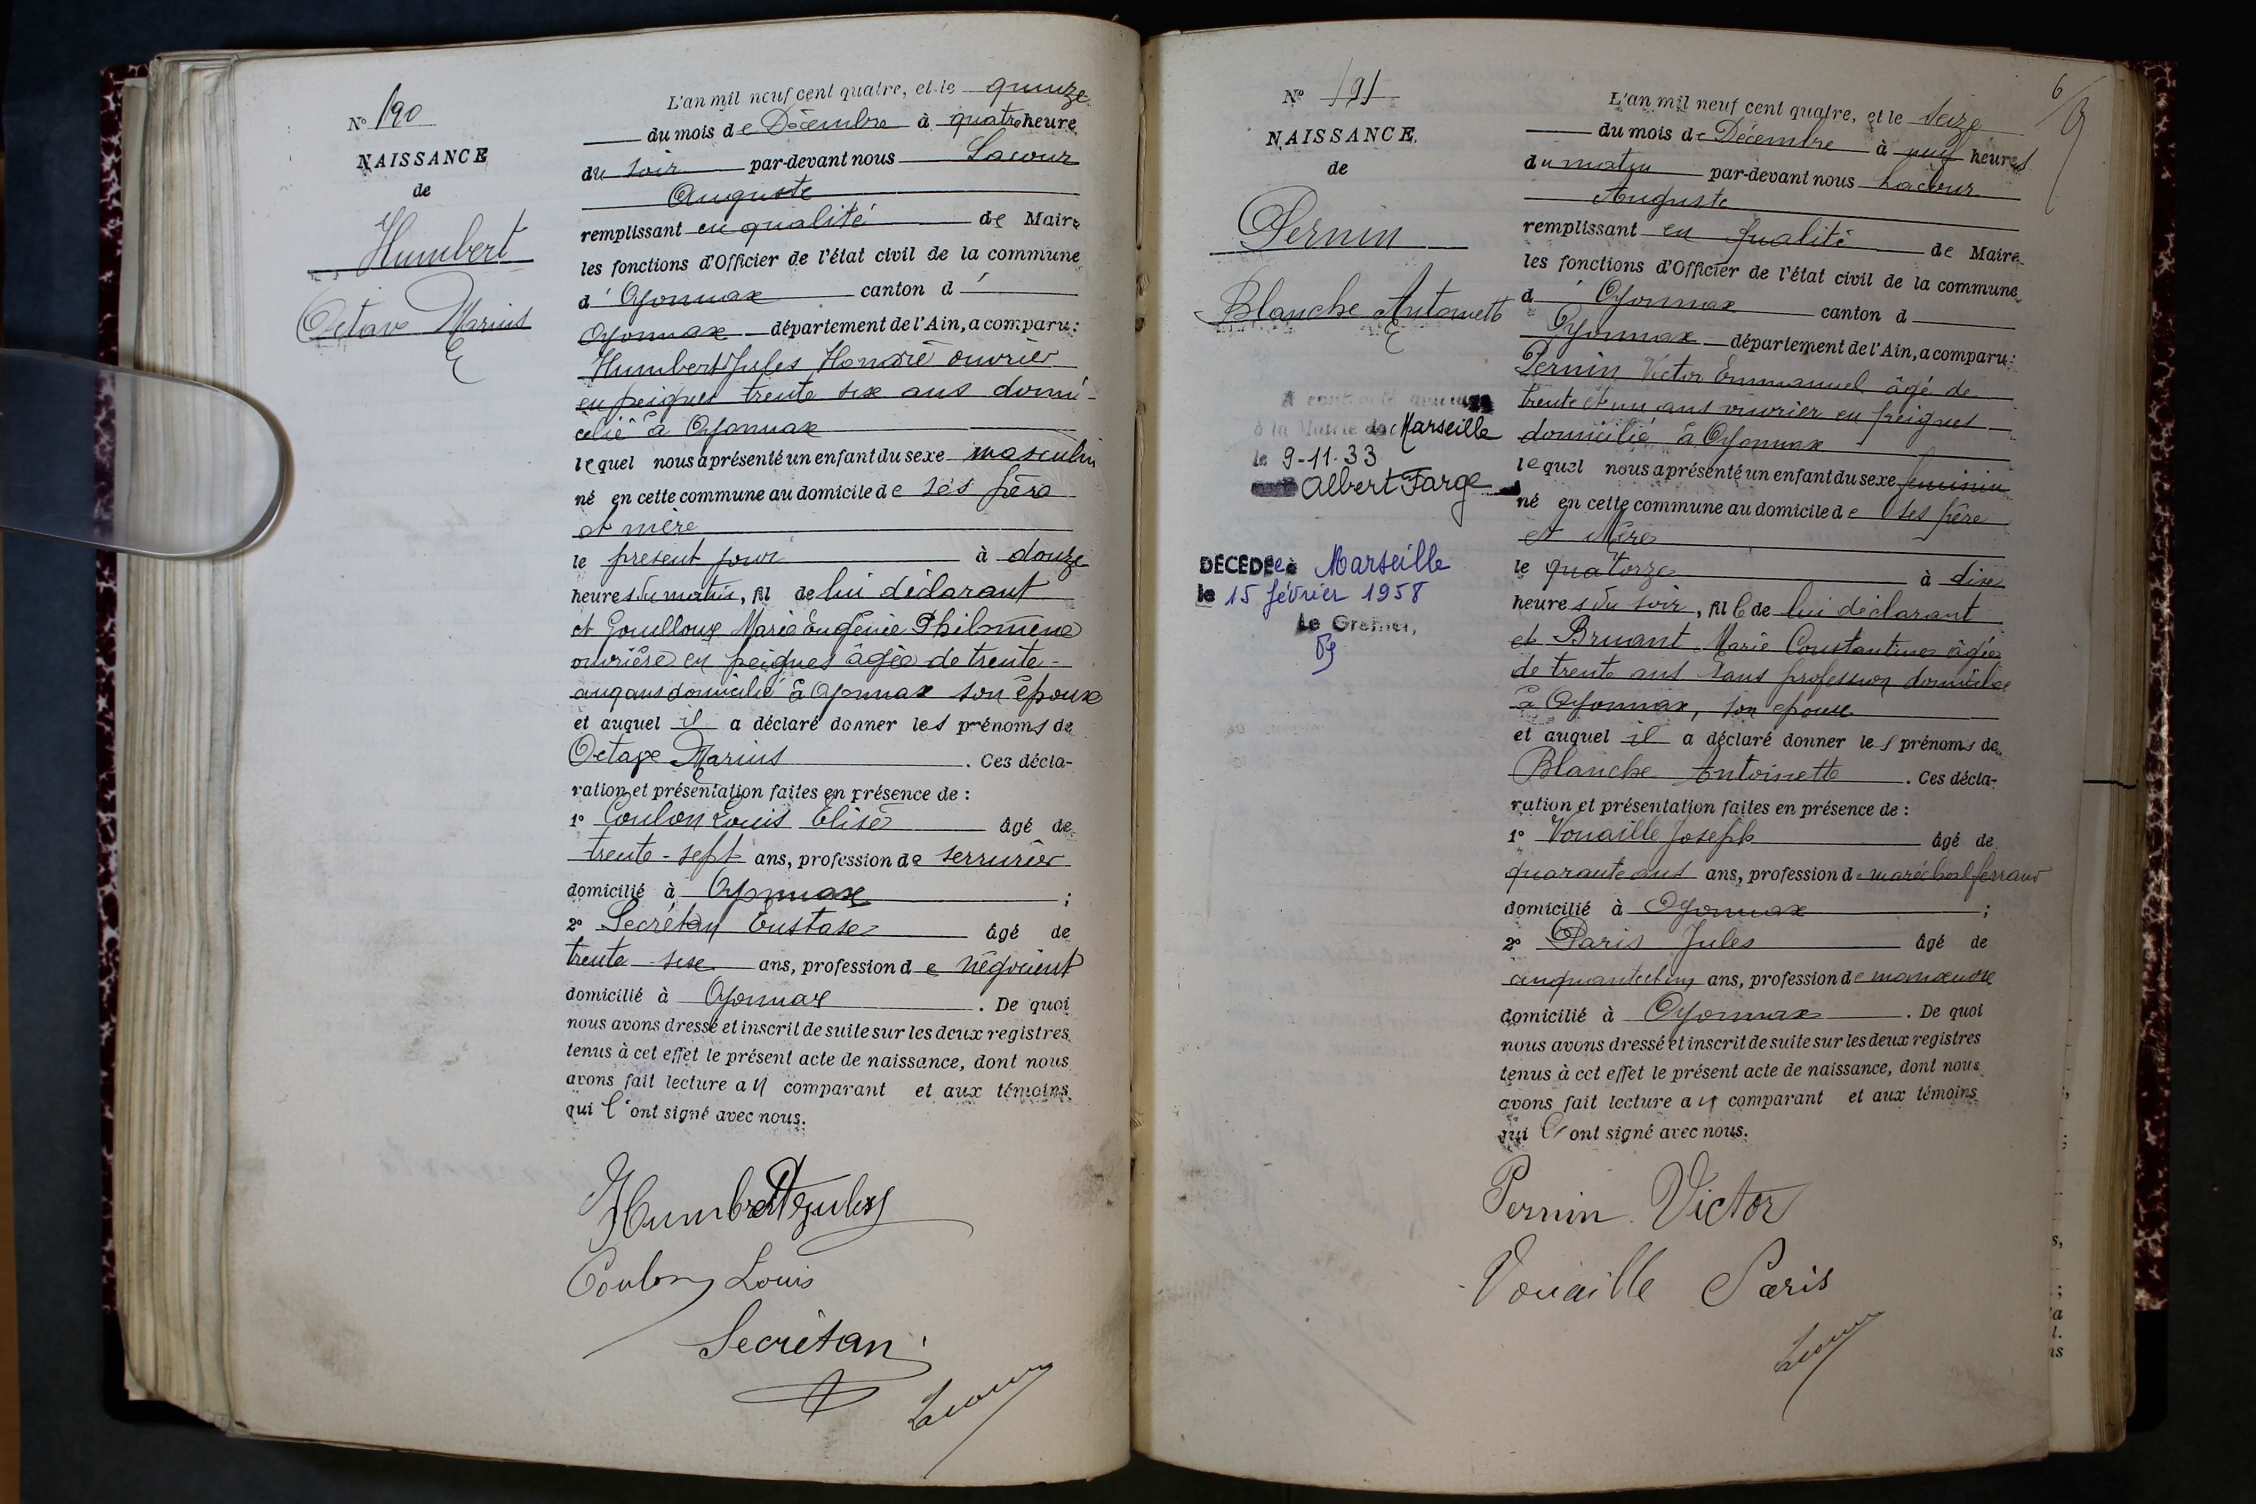 N° 190
NAISSANCE
de
Humbert
Octave Marius
L'an mil neuf cent quatre, et le quinze
du mois de Décembre à quatre heure
du soir par-devant nous Lacour
Auguste
remplissant en qualité de Maire
les fonctions d'Officier de l'état civil de la commune
d' Oyonnax canton d'
Oyonnax département de l'Ain, a comparu:
Humbert Jules Honoré ouvrier
en peignes trente six ans domi-
cilié à Oyonnax
lequel nous a présenté un enfant du sexe masculin
né en cette commune au domicile de ses père
et mère
le présent jour à douze
heures du matin, fil de lui déclarant
et Goulloux Marie Eugénie Philomène
ouvrière en peignes âgée de trente-
cinq ans domicilié à Oyonnax son épouse
et auquel il a déclaré donner les prénoms de
Octave Marius . Ces décla-
ration et présentation faites en présence de :
1° Coulon Louis Elisé âgé de
trente-sept ans, profession de serrurier
domicilié à Oyonnax ;
2° Secrétan Eustase âgé de
trente-six ans, profession de négocient
domicilié à Oyonnax . De quoi
nous avons dressé et inscrit de suite sur les deux registres
tenus à cet effet le présent acte de naissance, dont nous
avons fait lecture au comparant et aux témoins
qui l'ont signé avec nous.
Humbert Jules
Coulon Louis
Secrétan
Lacour
N° 191
NAISSANCE
de
Pernin
Blanche Antoinette
A contracté mariage
à la Mairie de Marseille
le 9-11-33
Albert Farge
DÉCÉDÉe à Marseille
le 15 février 1958
Le Greffier,
6
L'an mil neuf cent quatre, et le seize
du mois de Décembre à neuf heures
du matin par-devant nous Lacour
Auguste
remplissant en qualité de Maire
les fonctions d'Officier de l'état civil de la commune
d' Oyonnax canton d
Oyonnax département de l'Ain, a comparu:
Pernin Victor Emmanuel âgé de
trente et un ans ouvrier en peignes
domicilié à Oyonnax
lequel nous a présenté un enfant du sexe féminin
né en cette commune au domicile de ses père
et Mère
le quatorze à dix
heures du soir, fille de lui déclarant
et Bruant Marie Constantine âgée
de trente ans sans profession domiciliée
à Oyonnax, son épouse
et auquel il a déclaré donner les prénoms de
Blanche Antoinette . Ces décla-
ration et présentation faites en présence de :
1° Vouaille Joseph âgé de
quarante ans ans, profession de maréchal ferrand
domicilié à Oyonnax ;
2° Paris Jules âgé de
cinquante et un ans, profession de manœuvre
domicilié à Oyonnax . De quoi
nous avons dressé et inscrit de suite sur les deux registres
tenus à cet effet le présent acte de naissance, dont nous
avons fait lecture au comparant et aux témoins
qui l'ont signé avec nous.
Pernin Victor
Vouaille Paris
Lacour